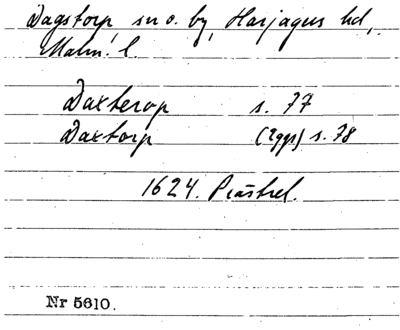 Dagstorp sn o. by, Harjagers hd,
Malm. l.
Daxterop s. 77
Daxtorp (2ggr) s. 78
1624. Prästrel.
Nr 5610.